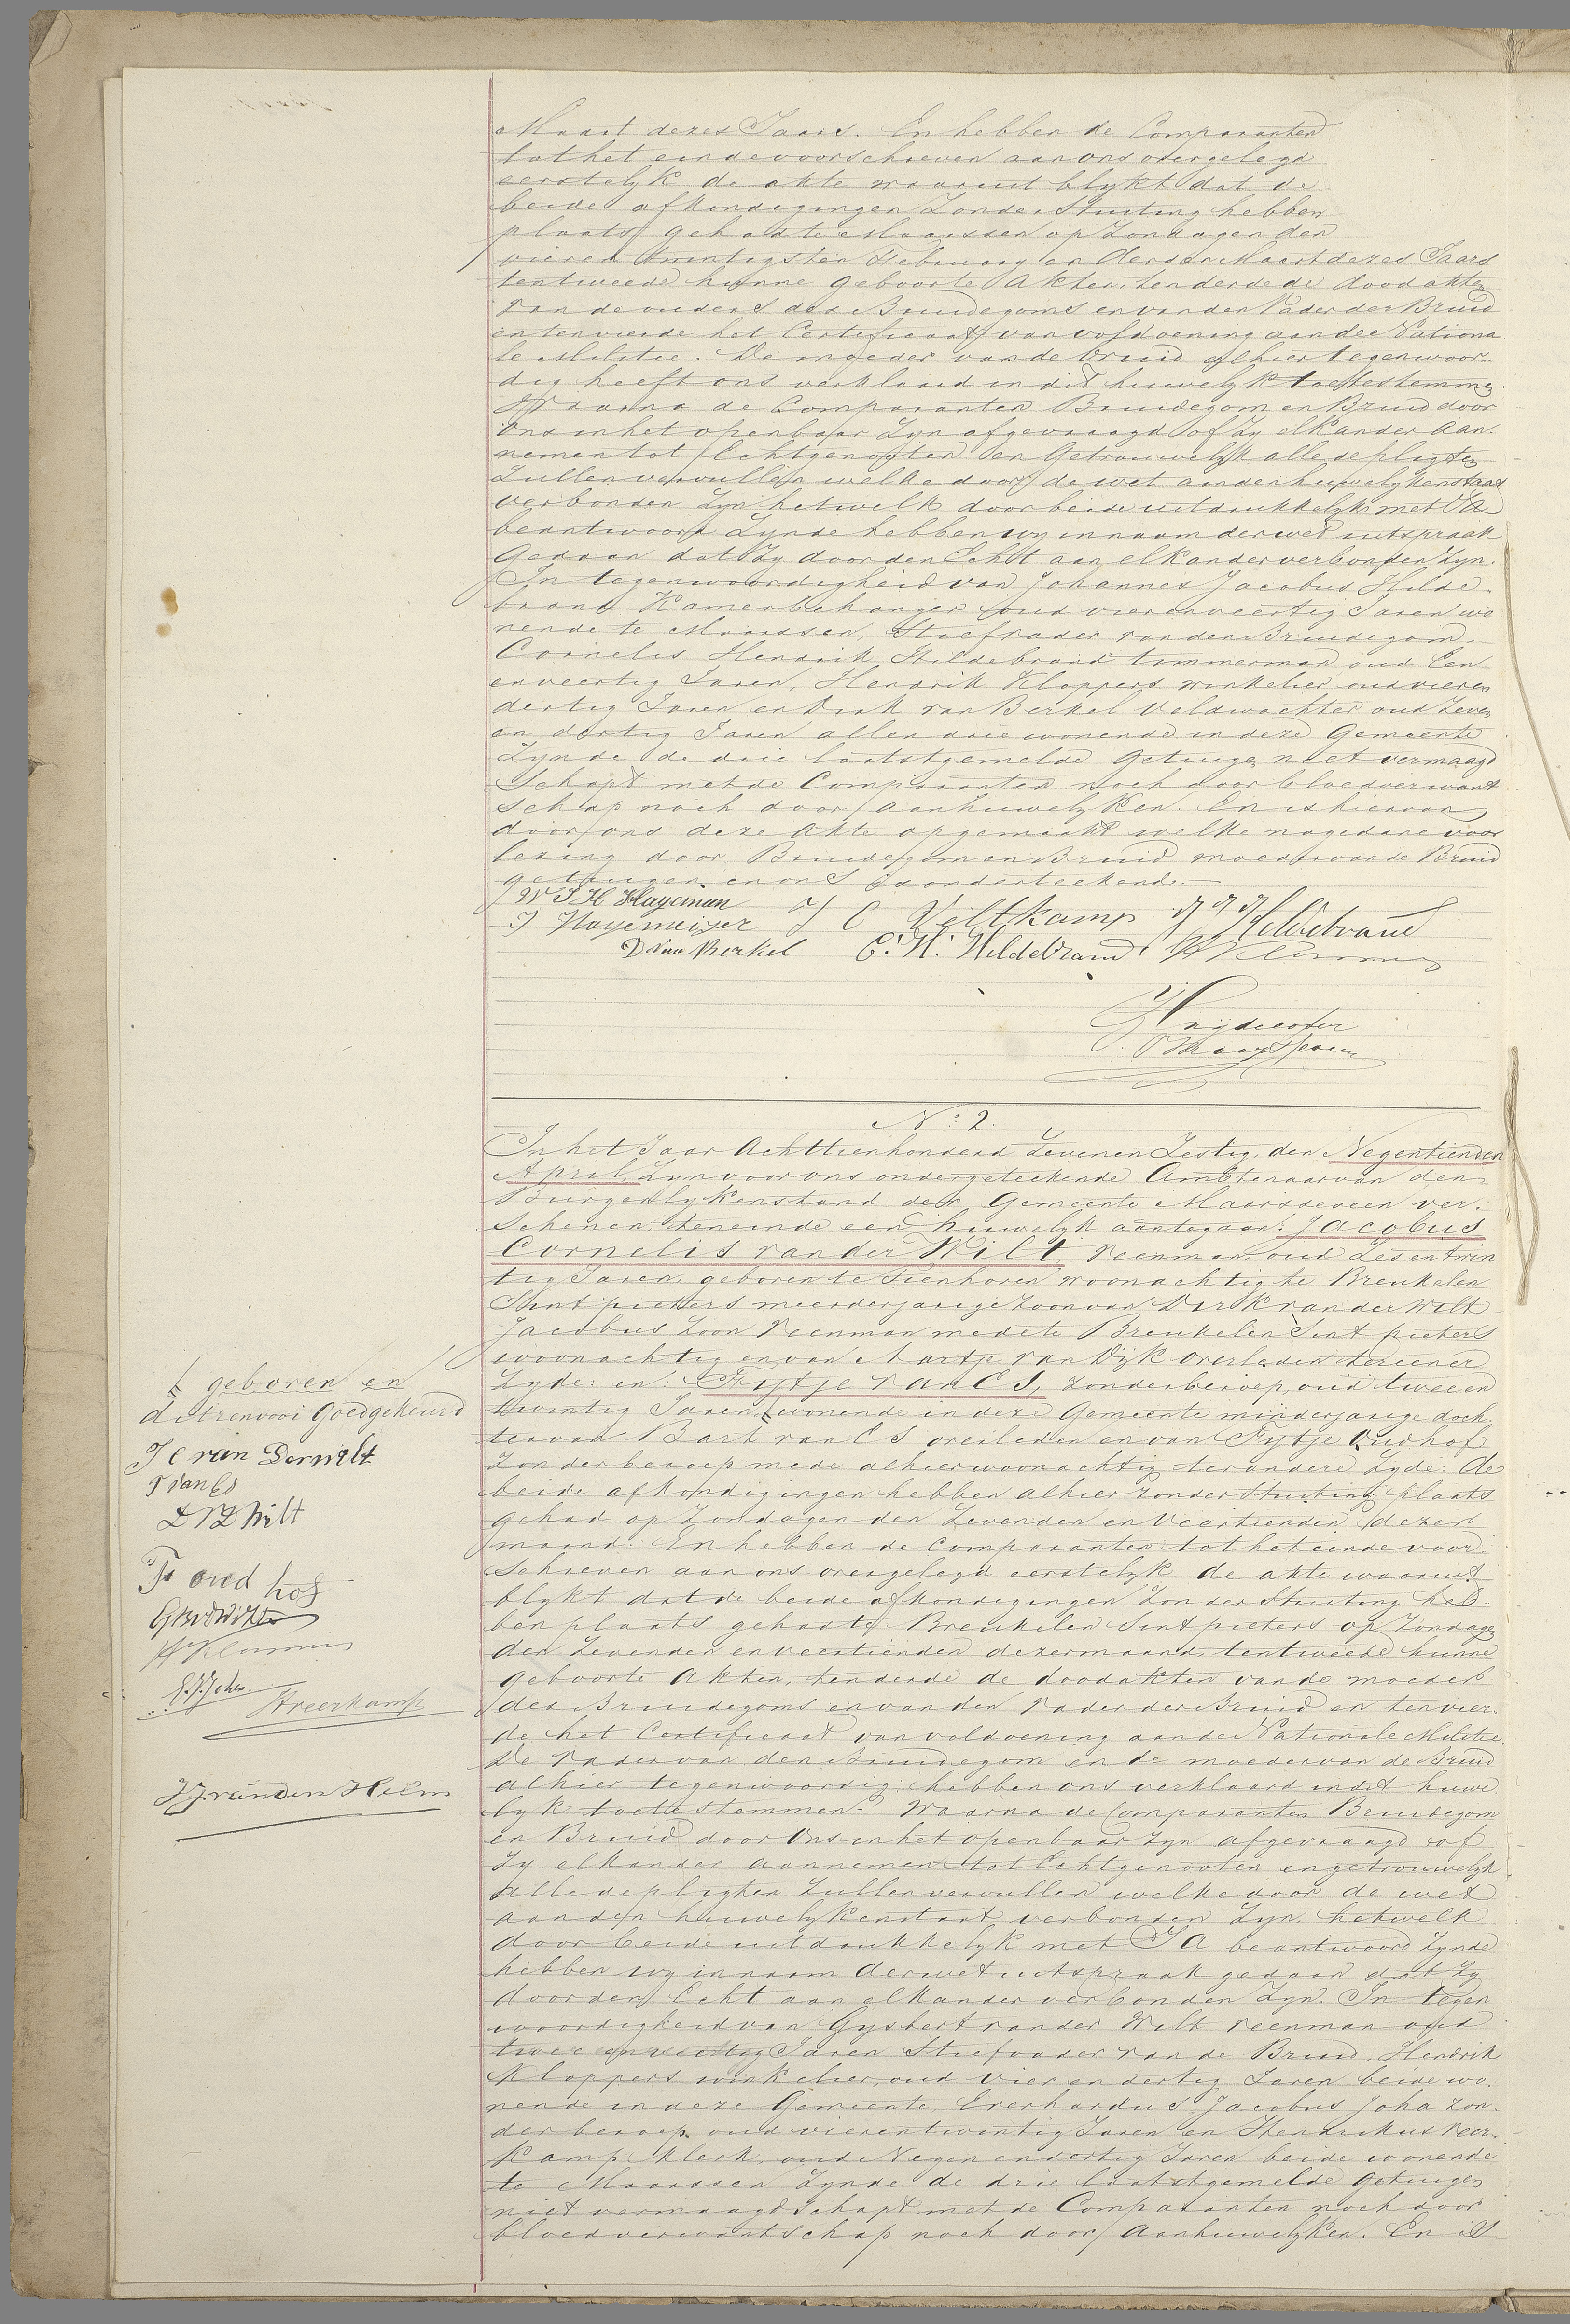 Maart dezes Jaars. En hebben de Comparanten
tot het einde voorschreven aan ons overgelegd
eerstelyk de akte waaruit blykt dat de
beide afkondigingen Zonder Stuiting hebben
plaats gehad te Maarssen op Zondagen den
vieren twintigsten Februarij en derden Maart dezes Jaars
tentweede hunne geboorte Akten, ten derde de dood akten
van de ouders des Bruidegoms en van den Vader der Bruid
en ten vierde het Certificaat van voldoening aan de Nationa
le Militie. De moeder van de bruid alhier tegenwoor-
dig heeft ons verklaard in dit huwelyk toetestemmen.
Waarna de Comparanten Bruidegom en Bruid door
Ons in het openbaar Zyn afgevraagd of Zy elkander aan-
nemen tot Echtgenooten en Getrouwelyk alle de pligten
Zullen vervullen welke door de wet aan den huwelyken staat
verbonden Zyn hetwelk door beide uitdrukkelyk met JA
beantwoord Zynde hebben wy in naam der wet uitspraak
Gedaan dat Zy door den Echt aan elkander verbonden Zyn.
In tegenwoordigheid van Johannes Jacobus Hilde-
brand Kamerbehanger oud vierenveertig Jaren wo
nende te Maarssen, Stiefvader van den Bruidegom,
Cornelis Hendrik Hildebrand timmerman oud Een
enveertig Jaren, Hendrik Kloppers winkelier oud vieren
dertig Jaren en Dirk van Berkel Veldwachter oud Zeven
en dertig Jaren allen drie wonende in deze Gemeente
Zynde de drie laatstgemelde Getuigen niet vermaagd
Schapt met de Comparanten noch door bloedverwant
schap noch door Aanhuwelyken. En is hiervan
door ons deze Akte opgemaakt welke na gedane voor
lezing door Bruidegom en Bruid moeder van de Bruid
getuigen en ons is onderteekend.
W J H Hageman J C Veltkamp J J Hildebrand
J Hagemeijer
D van Berkel C. H. Hildebrand H Kloppers
Huydecoper
v Maarsseveen
No 2.
In het Jaar Achttienhonderd Zevenen Zestig, den Negentienden
April, Zyn voor ons ondergeteekende Ambtenaar van den
Burgerlyken stand der Gemeente Maarsseveen ver-
Schenen teneinde een huwelyk aantegaan: Jacobus
Cornelis van der Wilt, Veenman oud Zes en twin
tig Jaren, geboren te Tienhoven woonachtig te Breukelen
Sint pieters meerderjarige Zoon van Dirk van der Wilt
Jacobus Zoon Veenman mede te Breukelen Sint pieters
woonachtig en van Martje van Dijk overleden ter eener
Zyde: en: Fijtje van Es, Zonder beroep, oud twee en
twintig Jaren, wonende in deze Gemeente minderjarige doch-
ter van Bart van Es overleden en van Fijtje Oudhof
Zonder beroep mede alhier woonachtig ter andere Zyde: De
beide afkondigingen hebben alhier Zonder Stuiting plaats
gehad op Zondagen den Zevenden en Veertienden dezer
maand. En hebben de Comparanten tot het einde voor-
Schreven aan ons overgelegd eerstelyk de akte waaruit
blykt dat de beide afkondigingen Zonder Stuiting heb-
ben plaats gehad te Breukelen Sint pieters op Zondagen
den Zevenden en veertienden dezer maand, tentweede hunne
geboorte Akten, ten derde de dood akten van de moeder
des Bruidegoms en van den Vader der Bruid en ten vier-
de het Certificaat van voldoening aan de Nationale Militie.
De Vader van den Bruidegom en de moeder van de Bruid
alhier tegenwoordig hebben ons verklaard in dit huwe
lyk toetestemmen. Waarna de Comparanten Bruidegom
en Bruid door Ons in het openbaar Zyn afgevraagd of
Zy elkander aannemen tot Echtgenooten en getrouwelyk
alle de pligten Zullen vervullen welke door de wet
aan den huwelyken staat verbonden Zyn, hetwelk
door beide uitdrukkelyk met JA beantwoord Zynde
hebben wy in naam der wet uitspraak gedaan dat Zy
door den Echt aan elkander verbonden Zyn. In tegen
woordigheid van Gysbert van der Wilt Veenman oud
twee en veertig Jaren Stiefvader van de Bruid, Hendrik
Kloppers winkelier, oud vier en dertig Jaren beide wo-
nende in deze Gemeente, Everhardus Jacobus Joha Zon-
der beroep oud vierentwintig Jaren en Hendrikus Veer-
Kamp Klerk, oud Negen en dertig Jaren beide wonende
te Maarssen Zynde de drie laatstgemelde Getuigen
niet vermaagdschapt met de Comparanten noch door
bloedverwantschap noch door Aanhuwelyken. En is
geboren en
ditrenvooi Goedgekeurd
J C van Derwilt
F van Es
D V D Wilt
F oud hof
G V D Wilt
H Kloppers
E J Joha
H Veerkamp
J J van den Helm